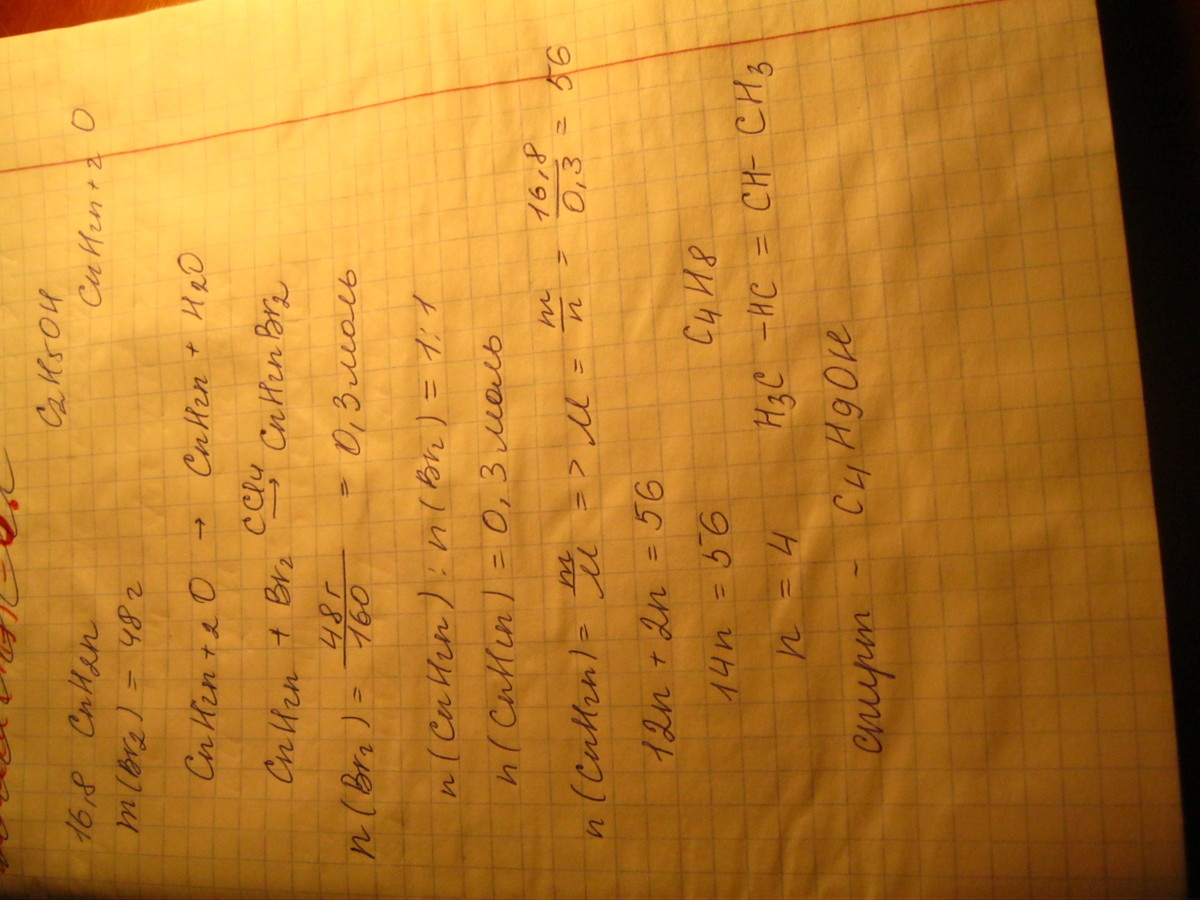 C2H5OH
16,8 CnH2n CnH2n+2O
m(Br2) = 48г
CnH2n+2O → CnH2n + H2O
CnH2n + Br2 CCl4→ CnH2nBr2
n(Br2) = 48г/160 = 0,3моль
n(CnH2n) : n(Br2) = 1:1
n(CnH2n) = 0,3моль
n(CnH2n) = m/M => M = m/n = 16,8/0,3 = 56
12n + 2n = 56
14n = 56 C4H8
n = 4 H3C -HC = CH- CH3
Спирт - C4H9OH